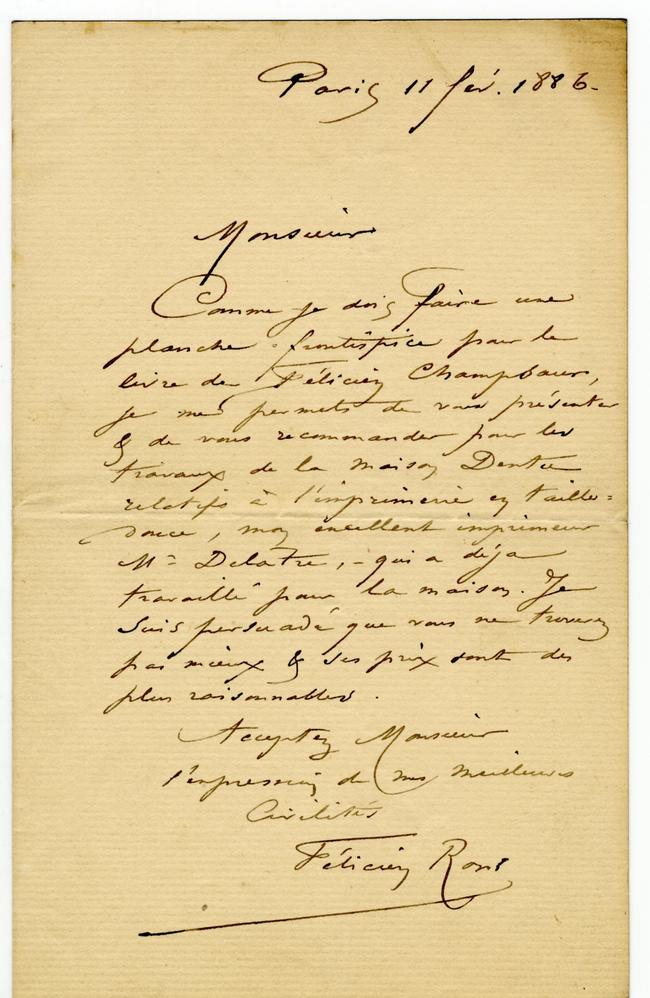 Paris 11 fév. 1886.
Monsieur
Comme je dois faire une
planche-frontispice pour le
livre de Félicien Champsaur,
je me permets de vous présenter
& de vous recommander pour les
travaux de la maison Dentu
relatifs à l'imprimerie en taille=
douce, mon excellent imprimeur
Mr Delatre, - qui a déja
travaillé pour la maison. Je
suis persuadé que vous ne trouverez
pas mieux & ses prix sont des
plus raisonnables.
Acceptez Monsieur
l'expression de mes meilleures
Civilités
Félicien Rops